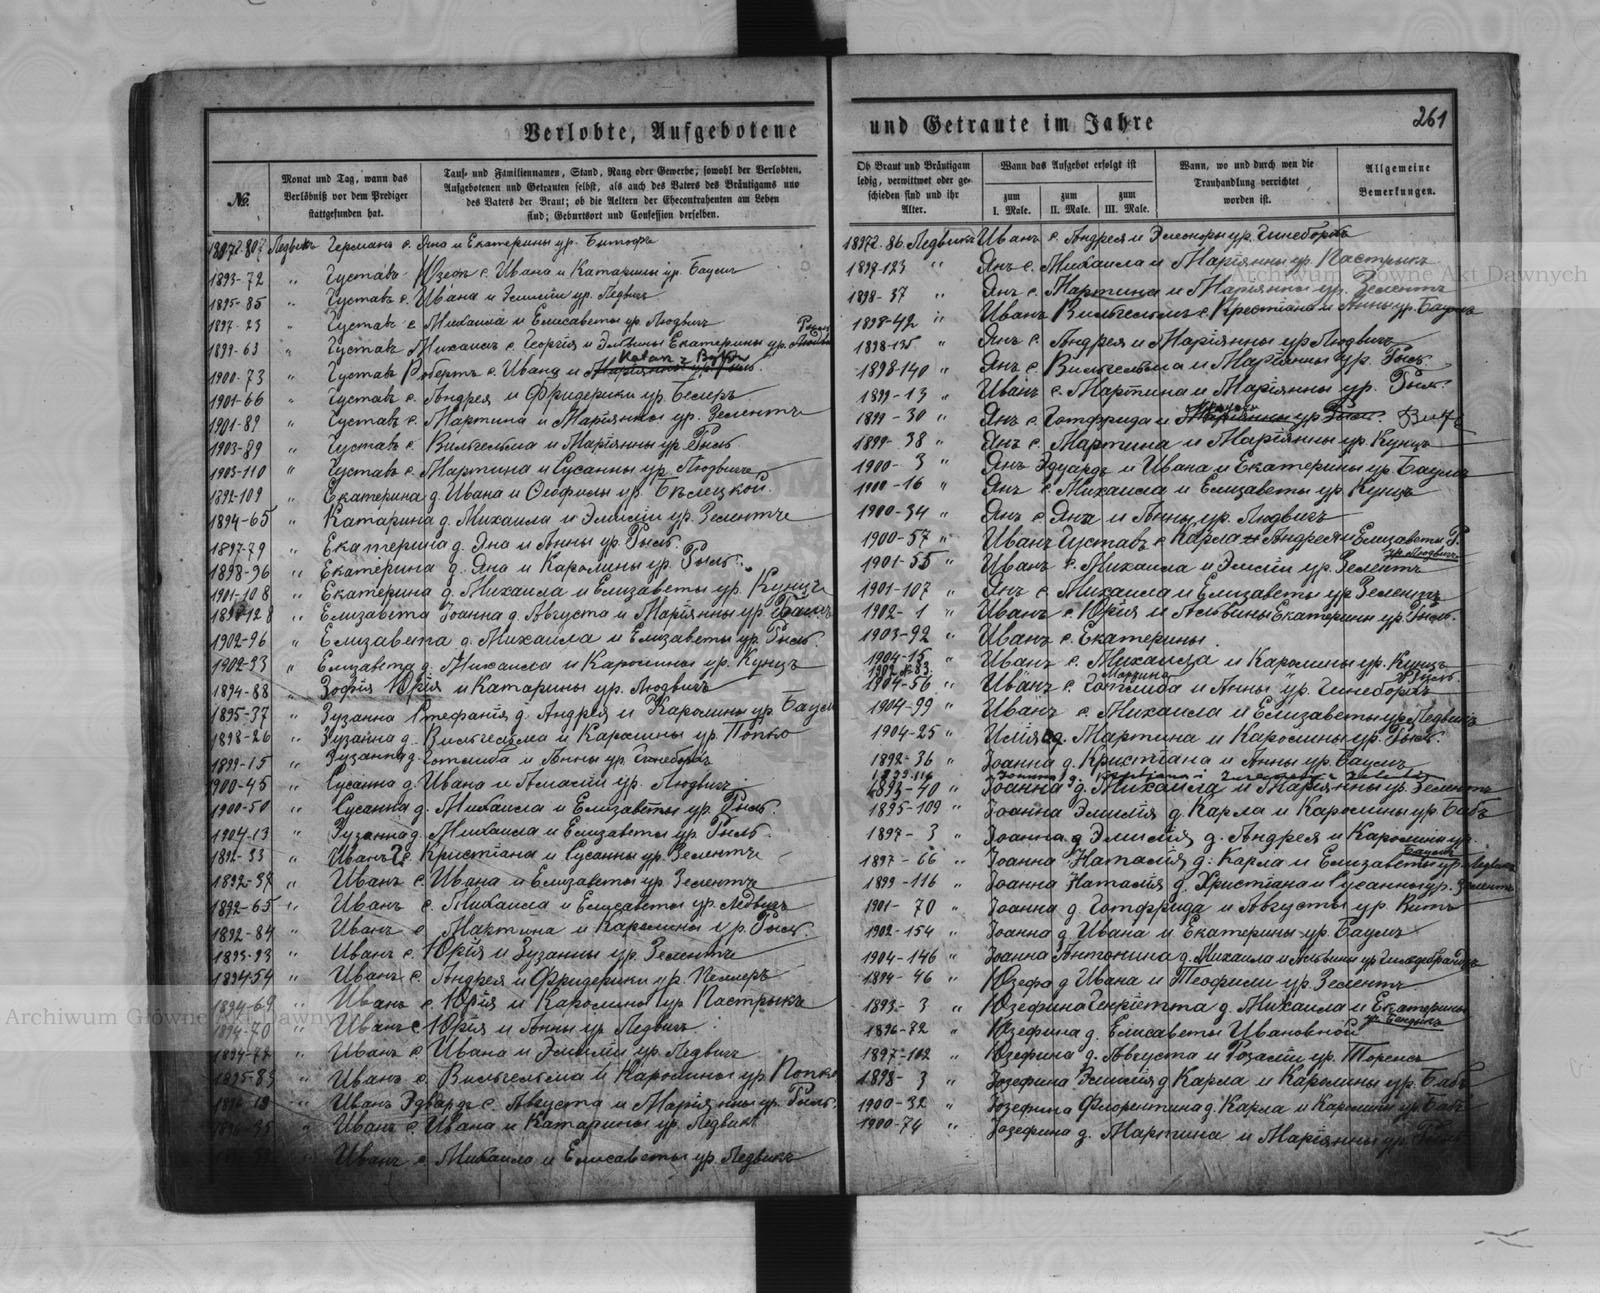 Verlobte, Aufgebotene
№
Monat und Tag, wann das
Verlöbniß vor dem Prediger
stattgefunden hat.
Tauf- und Familiennamen, Stand, Rang oder Gewerbe, sowohl der Verlobten,
Aufgebotenen und Getrauten selbst, als auch des Vaters des Bräutigams und
des Vaters der Braut; ob die Aeltern der Ehecontrahenten am Leben
sind; Geburtsort und Confession derselben.
Ледвикъ Германъ с. Яна и Екатерины ур.
1893-72 " Густавъ Юзефъ с. Ивана и Катарины ур. Баумъ
1895-85 " Густавъ с. Ивана и Эмилiи ур. Ледвигъ
1897-23 " Густавъ с. Михаила и Елисаветы ур. Людвигъ
1899-63 " Густавъ Михаилъ с. Георгiя и Эмилiи Екатерины ур.
1900-73 " Густавъ Робертъ с. Ивана и
1901-66 " Густавъ с. Андрея и Фридерики ур.
1901-89 " Густавъ с. Мартина и Марiянны ур. Зелентъ
1903-89 " Густавъ с. Вильгельма и Марiянны ур. Рыль
1903-110 " Густавъ с. Мартина и Сусанны ур. Людвигъ
1892-109 " Екатерина д. Ивана и Теофилы ур. Бѣлецкой
1894-65 " Катарина д. Михаила и Эмилiи ур. Зелентъ
1897-79 " Екатерина д. Яна и Анны ур. Рыль
1898-96 " Екатерина д. Яна и Каролины ур. Рыль
1901-108 " Екатерина д. Михаила и Елизаветы ур. Кунцъ
" Елизавета Iоанна д. Августа и Марiянны ур. Баумъ
1902-96 " Елизавета д. Михаила и Елизаветы ур. Рыль
1902-23 " Елизавета д. Михаила и Каролины ур. Кунцъ
1894-88 " Зофiя Юрiя и Катарины ур. Людвигъ
1895-37 " Зузанна Стефанiя д. Андрея и Каролины ур. Баумъ
1898-26 " Зузанна д. Вильгельма и Каролины ур. Попко
1899-15 " Зузанна д. Готлиба и Анны ур. Гинеборгъ
1900-45 " Сусанна д. Ивана и Амалiи ур. Людвигъ
1900-50 " Сусанна д. Михаила и Елизаветы ур. Рыль
1904-13 " Зузанна д. Михаила и Елизаветы ур. Рыль
1892-33 " Иванъ с. Кристiана и Сусанны ур. Зелентъ
1892-37 " Иванъ с. Ивана и Елизаветы ур. Зелентъ
1892-65 " Иванъ с. Михаила и Елисаветы ур. Ледвигъ
1892-84 " Иванъ с. Мартина и Каролины ур. Рыль
1893-93 " Иванъ с. Юрiя и Зузанны ур. Зелентъ
1894-54 " Иванъ с. Андрея и Фридерики ур.
1894-69 " Иванъ с. Юрiя и Каролины ур. Пастрыкъ
1894-70 " Иванъ с. Юрiя и Анны ур. Ледвигъ
1894-72 " Иванъ с. Ивана и Эмилiи ур. Ледвигъ
1895-83 " Иванъ с. Вильгельма и Каролины ур. Попко
" Иванъ Эдвардъ с. Августа и Марiянны ур. Рыль
" Иванъ с. Ивана и Катарины ур. Ледвикъ
Иванъ с. Михаила и Елисаветы ур. Ледвикъ
und Getraute im Jahre
261
Ob Braut und Bräutigam
ledig, verwittwet oder ge-
schieden sind und ihr
Alter.
Wann das Aufgebot erfolgt ist
zum
I. Male.
zum
II. Male.
zum
III. Male.
Wann, wo und durch wen die
Trauhandlung verrichtet
worden ist.
Allgemeine
Bemerkungen.
Ледвикъ Иванъ с. Андрея и Элеоноры ур. Гинеборгъ
1897-123 " Янъ с. Михаила и Марiянны ур. Пастрыкъ
1898-37 " Янъ с. Мартина и Марiянны ур. Зелентъ
1898-42 " Иванъ Вильгельмъ с. Кристiана и Анны ур. Баумъ
1898-125 " Янъ с. Андрея и Марiянны ур. Людвигъ
1898-140 " Янъ с. Вильгельма и Марiянны ур. Рыль
1899-13 " Иванъ с. Мартина и Марiянны ур. Рыль
1899-30 " Янъ с. Готфрида и
1899-38 " Янъ с. Мартина и Марiянны ур. Кунцъ
1900-3 " Янъ Эдуардъ и Ивана и Екатерины ур. Баумъ
1900-16 " Янъ с. Михаила и Елизаветы ур. Кунцъ
1900-34 " Янъ с. Яна и Анны ур. Людвигъ
1900-57 " Иванъ Густавъ с. Карла Андрея и Елизаветы Р.
ур. Людвигъ
1901-55 " Иванъ с. Михаила и Эмилiи ур. Зелентъ
1901-107 " Янъ с. Михаила и Елизаветы ур. Зелентъ
1902-1 " Иванъ с. Юрiя и Альвины Екатерины ур. Рыль
1903-92 " Иванъ с. Екатерины
1904-15 " Иванъ с. Михаила и Каролины ур. Кунцъ
1904-56 " Иванъ с. Готлиба и Анны ур. Гинеборгъ
1904-99 " Иванъ с. Михаила и Елизаветы ур. Ледвигъ
1904-25 " Юлiя д. Мартина и Каролины ур. Рыль
1892-36 " Iоанна д. Кристiана и Анны ур. Баумъ
1893-40 " Iоанна д. Михаила и Марiянны ур. Зелентъ
1895-109 " Iоанна Эмилiя д. Карла и Каролины ур. Бабъ
1897-3 " Iоанна Эмилiя д. Андрея и Каролины ур.
Баумъ
1897-66 " Iоанна Наталiя д. Карла и Елизаветы ур. Ледвигъ
1899-116 " Iоанна Наталiя д. Христiана и Сусанны ур. Зелентъ
1901-70 " Iоанна д. Готфрида и Августы ур. Витъ
1902-154 " Iоанна д. Ивана и Екатерины ур. Баумъ
1904-146 " Iоанна Антонина д. Михаила и Альвины ур. Гильдебрандъ
1894-46 " Юзефа д. Ивана и Теофилы ур. Зелентъ
1893-3 " Юзефина Генрiетта д. Михаила и Екатерины
1896-72 " Юзефина д. Елисаветы Ивановной
1897-102 " Юзефина д. Августа и Розалiи ур.
1898-3 " Iозефина Эмилiя д. Карла и Каролины ур. Бабъ
1900-32 " Iозефина Флорентина д. Карла и Каролины ур. Бабъ
1900-74 " Iозефина д. Мартина и Марiянны ур. Рыль
Archiwum Główne Akt Dawnych
Archiwum Główne Akt Dawnych